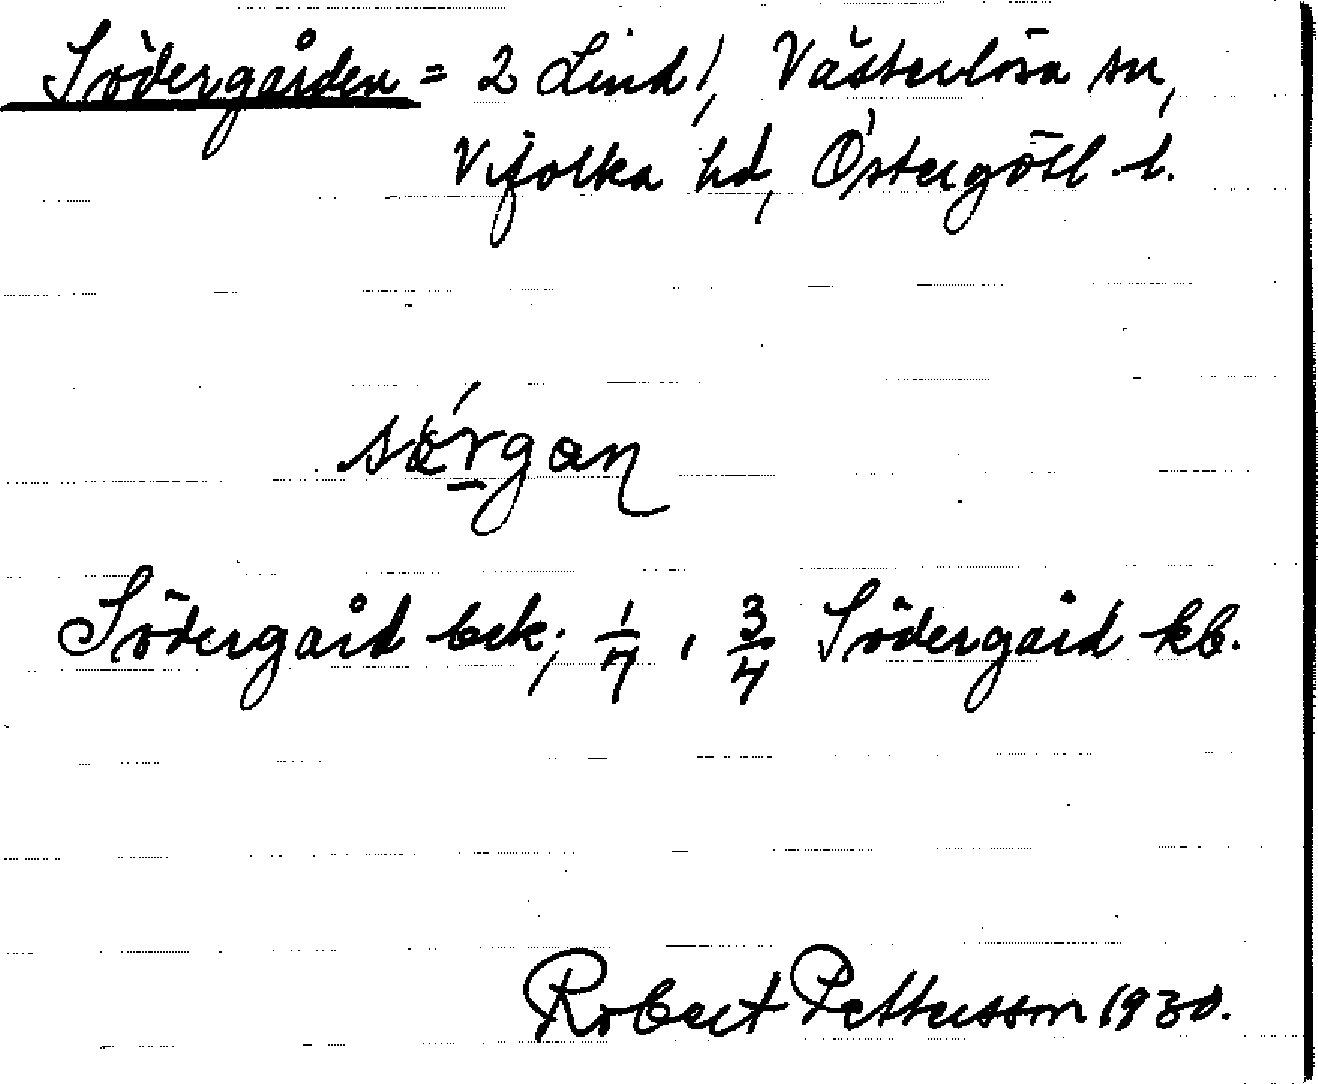 Södergården = 2 Lind!, Västerlösa sn,
Vifolka hd, Östergötl. l.
sǿrgan
Södergård bek; 1/7, 3/4 Södergård kb.
Robert Pettersson 1930.